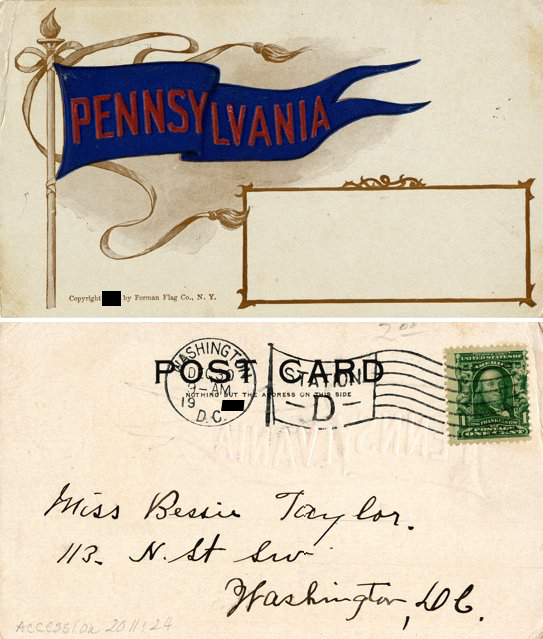 PENNSYLVANIA
Copyright by Forman Flag Co., N. Y.
POST CARD
NOTHING BUT THE ADDRESS ON THIS SIDE
WASHINGTON
9-AM
19
D.C.
STATION
D
UNITED STATES OF
AMERICA
POSTAGE
ONE CENT
Miss Bessie Taylor.
113. N. St Sw
Washington, DC.
Accession 2011:24